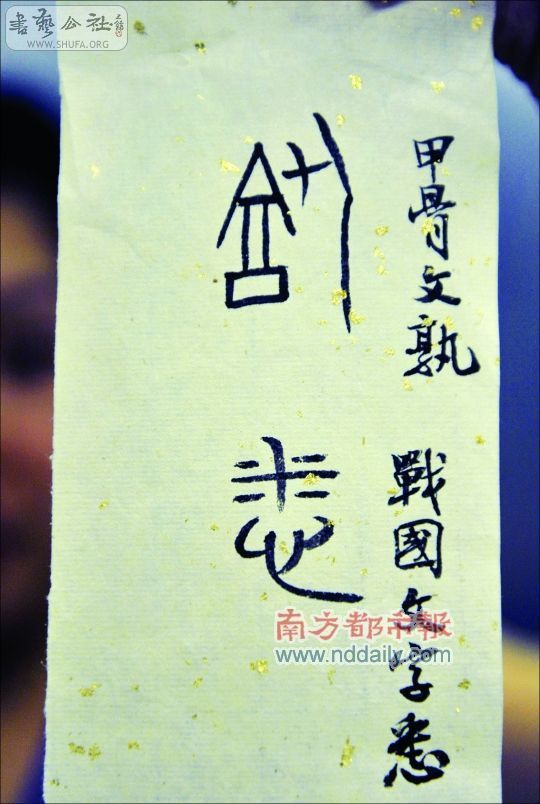 書藝公社
WWW.SHUFA.ORG
甲骨文孰
戰國文字悉
南方都市報
www.nddaily.com